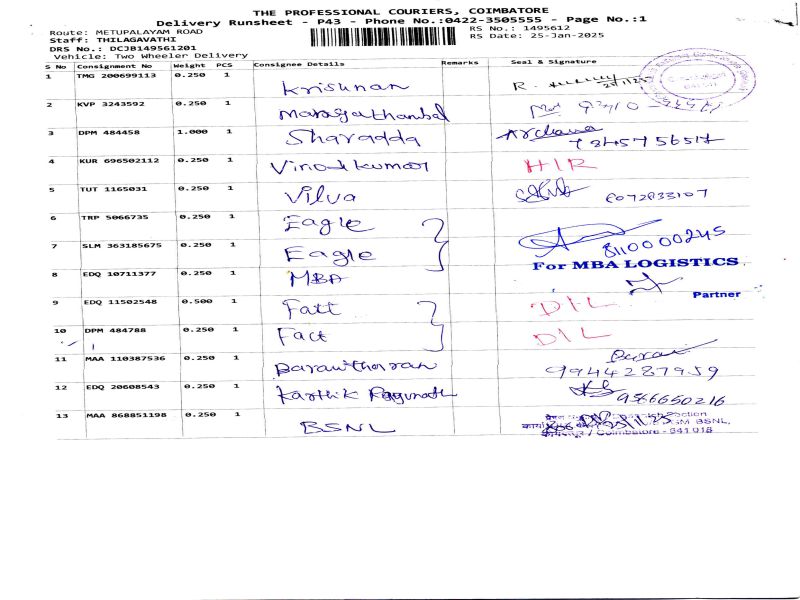 THE PROFESSIONAL COURIERS, COIMBATORE
Delivery Runsheet - P43 - Phone No.:0422-3505555 - Page No.:1
Route: METUPALAYAM ROAD
RS No.: 1495612
Staff: THILAGAVATHI
RS Date: 25-Jan-2025
DRS No.: DCJB149561201
Vehicle: Two Wheeler Delivery
S No Consignment No Weight PCS Consignee Details Remarks Seal & Signature
1 TMG 200699113 0.250 1 Krishnan R.
2 KVP 3243592 0.250 1 Maragathambal
3 DPM 484458 1.000 1 Sharadda Archana
4 KUR 696502112 0.250 1 Vinoth kumar HIR
5 TUT 1165031 0.250 1 Vilva 8072833107
6 TRP 5066735 0.250 1 Eagle
7 SLM 363185675 0.250 1 Eagle 8110000245
8 EDQ 10711377 0.250 1 MBA For MBA LOGISTICS
Partner
9 EDQ 11502548 0.500 1 Fact DIL
10 DPM 484788 0.250 1 Fact DIL
11 MAA 110387536 0.250 1 Baranitharan 9944287959
12 EDQ 20608543 0.250 1 Karthik Ragunath 9566650216
13 MAA 868851198 0.250 1 BSNL
GM BSNL,
/ Coimbatore - 641 018